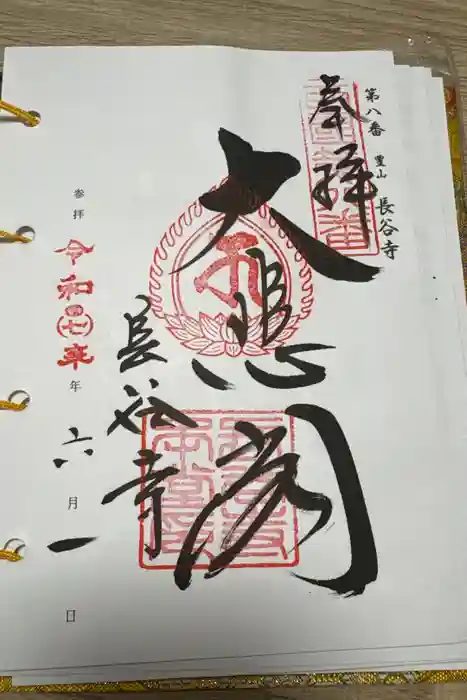 第八番 豊山 長谷寺
奉拝
大悲閣
長谷寺
参拝 令和七年 年 六月 一 日